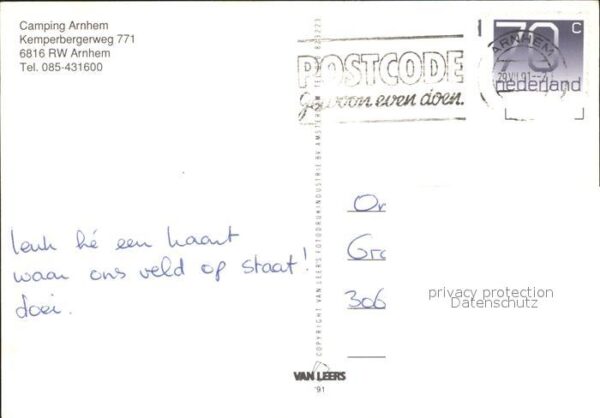 Camping Arnhem
Kemperbergerweg 771
6816 RW Arnhem
Tel. 085-431600
POSTCODE
gewoon even doen.
ARNHEM
29.VII.91
70 c
nederland
leuk hé een kaart
waar ons veld op staat!
doei.
Gr
306
privacy protection
Datenschutz
COPYRIGHT VAN LEER'S FOTODRUKINDUSTRIE BV AMSTERDAM
VAN LEERS
'91